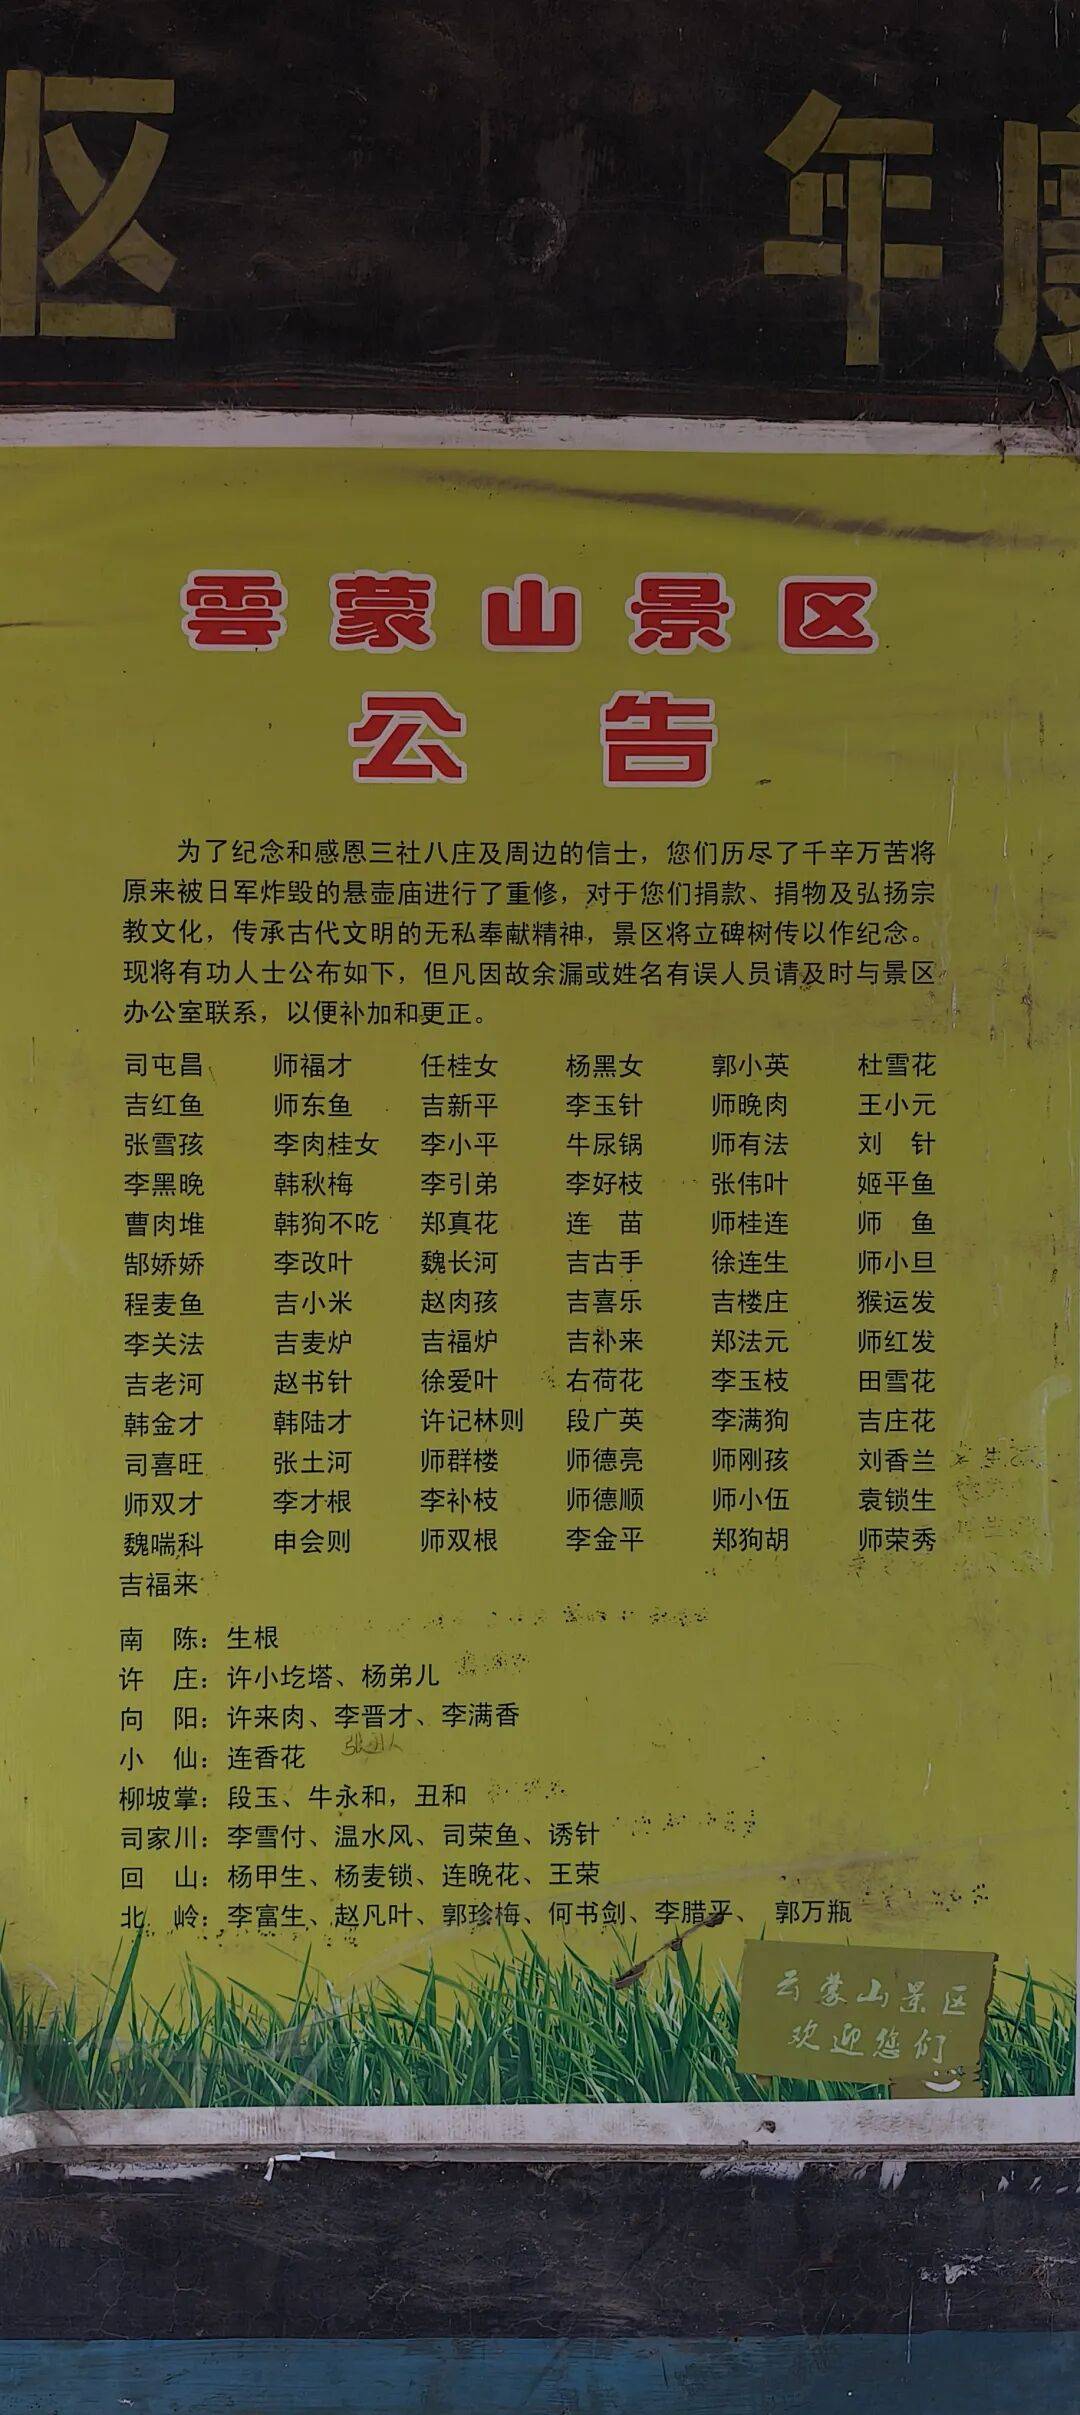 区 年度
雲蒙山景区
公告
为了纪念和感恩三社八庄及周边的信士，您们历尽了千辛万苦将
原来被日军炸毁的悬壶庙进行了重修，对于您们捐款、捐物及弘扬宗
教文化，传承古代文明的无私奉献精神，景区将立碑树传以作纪念。
现将有功人士公布如下，但凡因故余漏或姓名有误人员请及时与景区
办公室联系，以便补加和更正。
司屯昌 师福才 任桂女 杨黑女 郭小英 杜雪花
吉红鱼 师东鱼 吉新平 李玉针 师晚肉 王小元
张雪孩 李肉桂女 李小平 牛尿锅 师有法 刘 针
李黑晚 韩秋梅 李引弟 李好枝 张伟叶 姬平鱼
曹肉堆 韩狗不吃 郑真花 连 苗 师桂连 师 鱼
郜娇娇 李改叶 魏长河 吉古手 徐连生 师小旦
程麦鱼 吉小米 赵肉孩 吉喜乐 吉楼庄 猴运发
李关法 吉麦炉 吉福炉 吉补来 郑法元 师红发
吉老河 赵书针 徐爱叶 右荷花 李玉枝 田雪花
韩金才 韩陆才 许记林则 段广英 李满狗 吉庄花
司喜旺 张土河 师群楼 师德亮 师刚孩 刘香兰
师双才 李才根 李补枝 师德顺 师小伍 袁锁生
魏喘科 申会则 师双根 李金平 郑狗胡 师荣秀
吉福来
南 陈：生根
许 庄：许小圪塔、杨弟儿
向 阳：许来肉、李晋才、李满香
小 仙：连香花
柳坡掌：段玉、牛永和，丑和
司家川：李雪付、温水风、司荣鱼、诱针
回 山：杨甲生、杨麦锁、连晚花、王荣
北 岭：李富生、赵凡叶、郭珍梅、何书剑、李腊平、 郭万瓶
云蒙山景区
欢迎您们